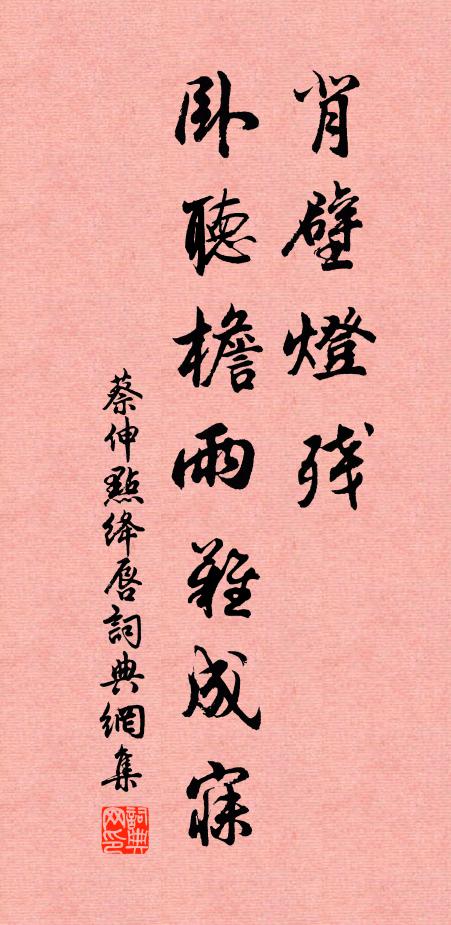 背壁燈残
卧聽檐雨難成寐
蔡伸點绛唇詞典網集
詞典网印